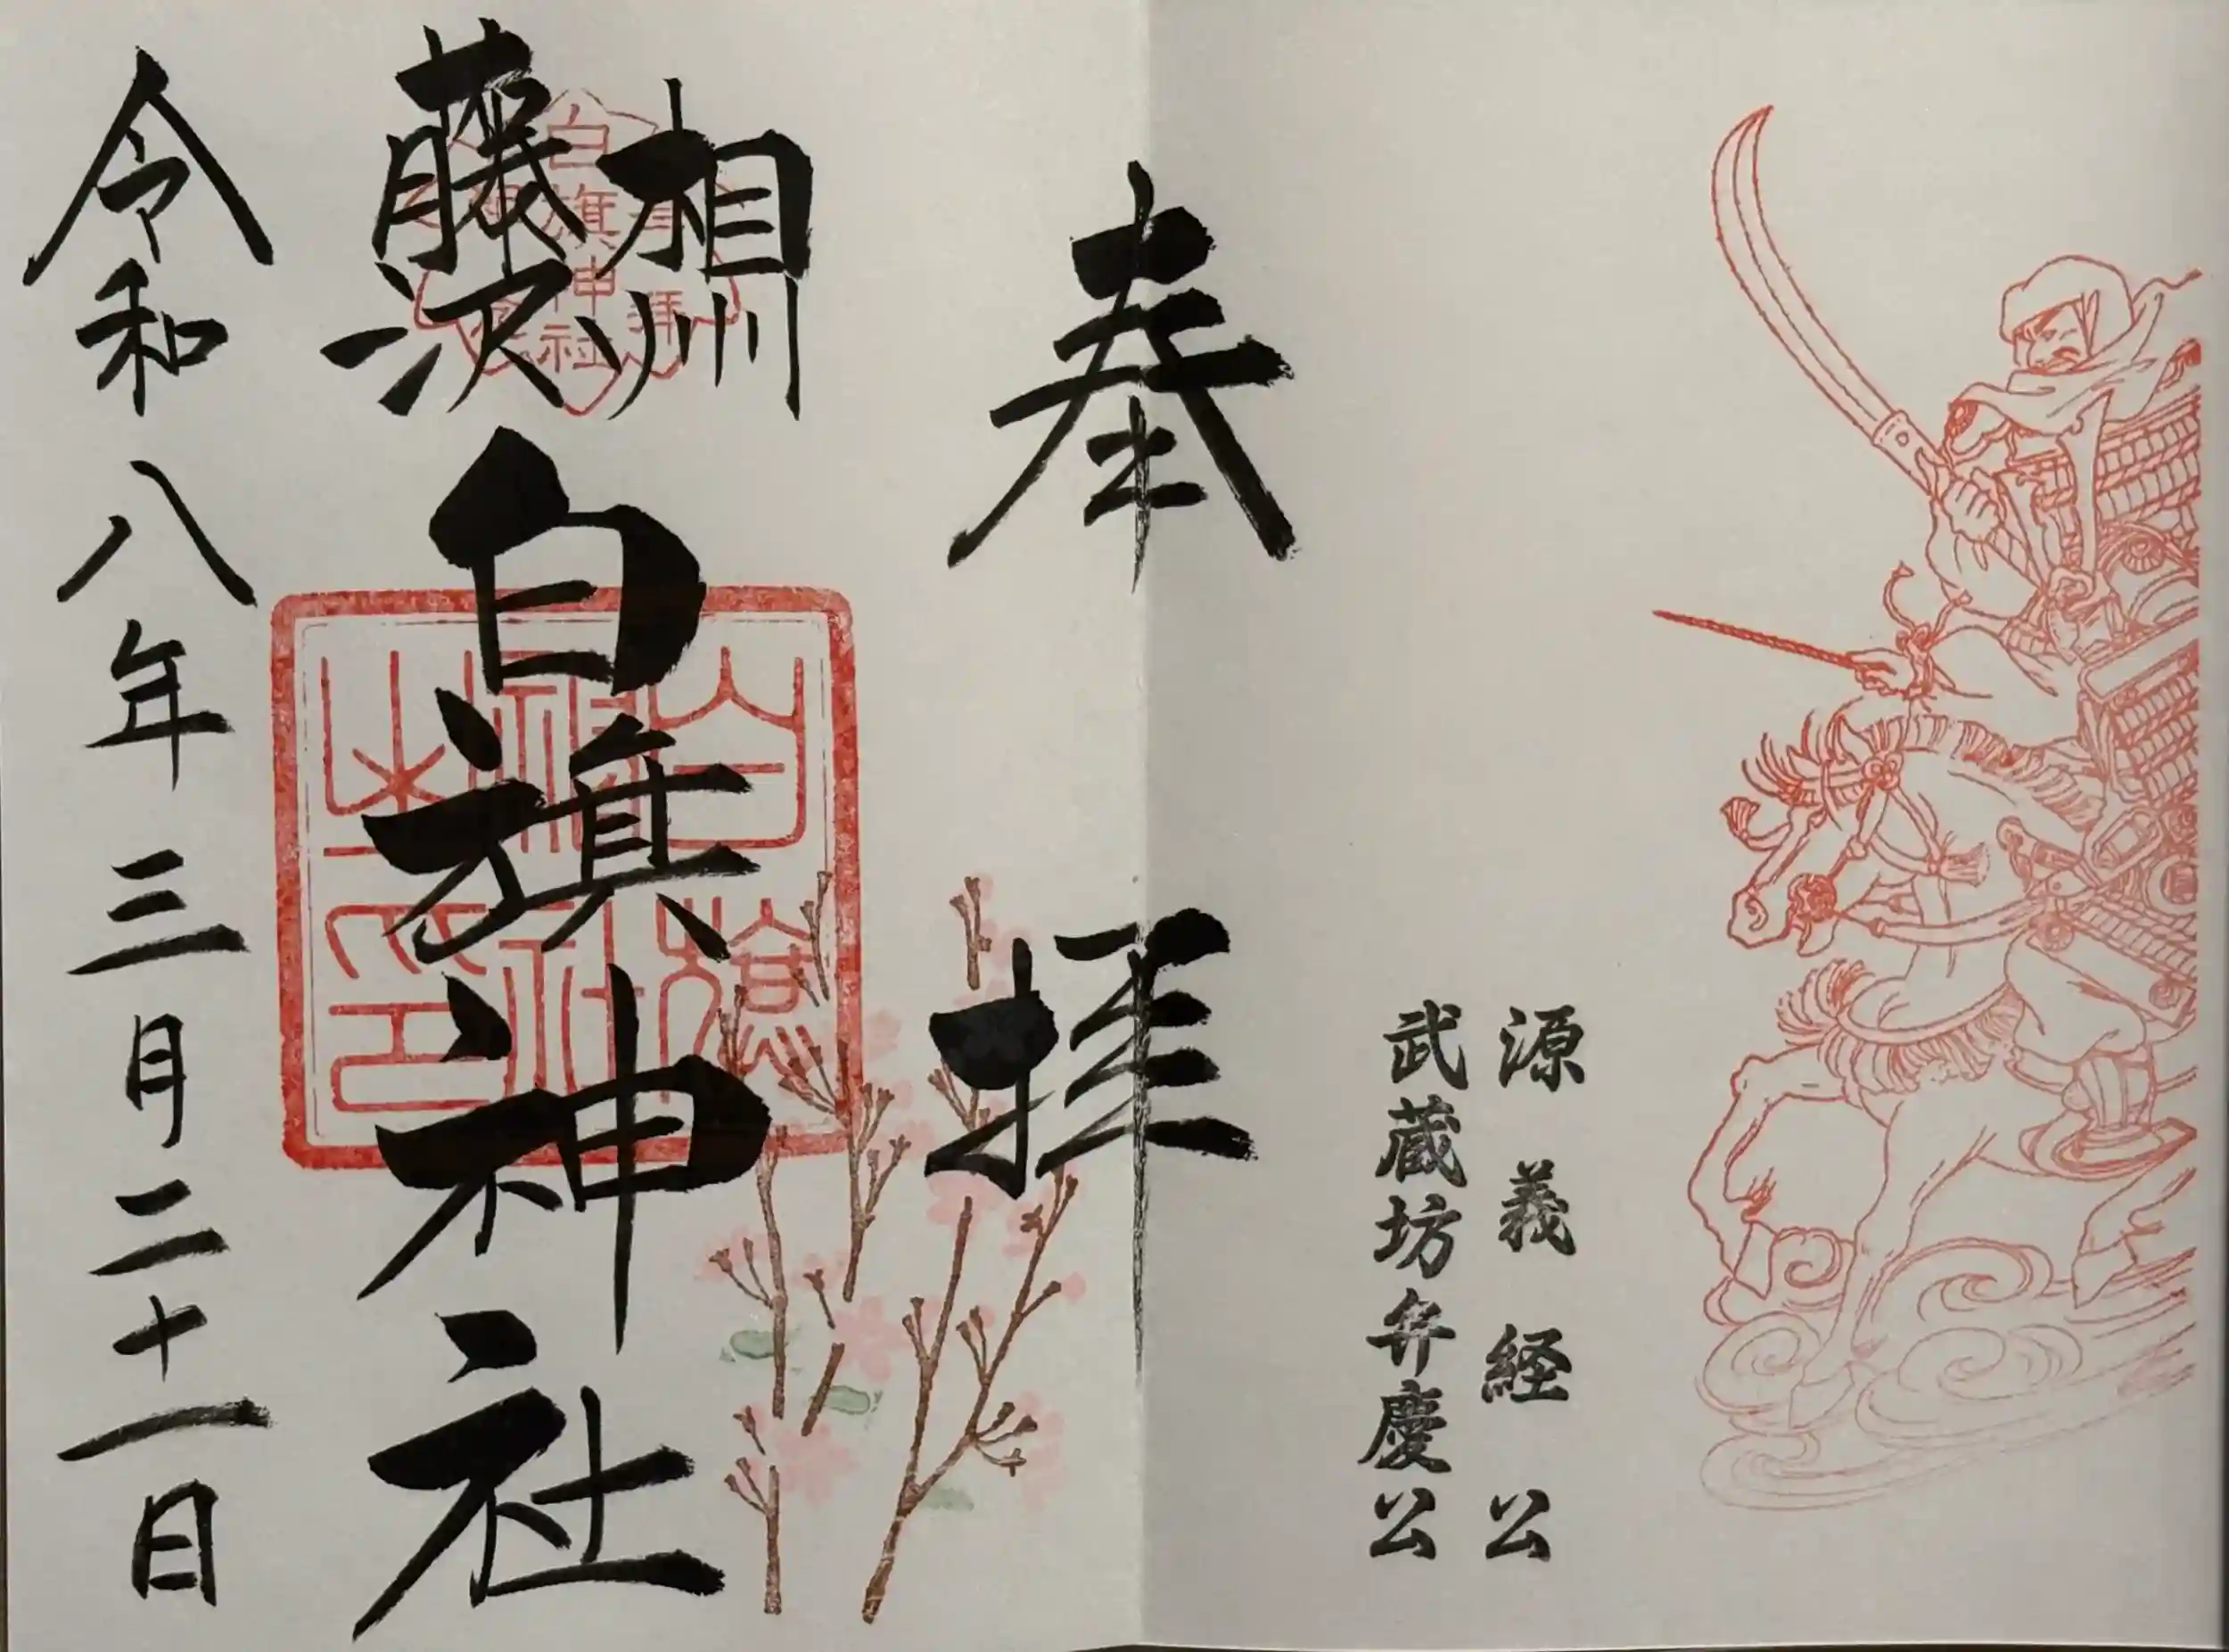 源義経公
武蔵坊弁慶公
奉拝
相州
藤沢
白旗神社
白旗神社
白旗神社之印
令和八年三月二十一日